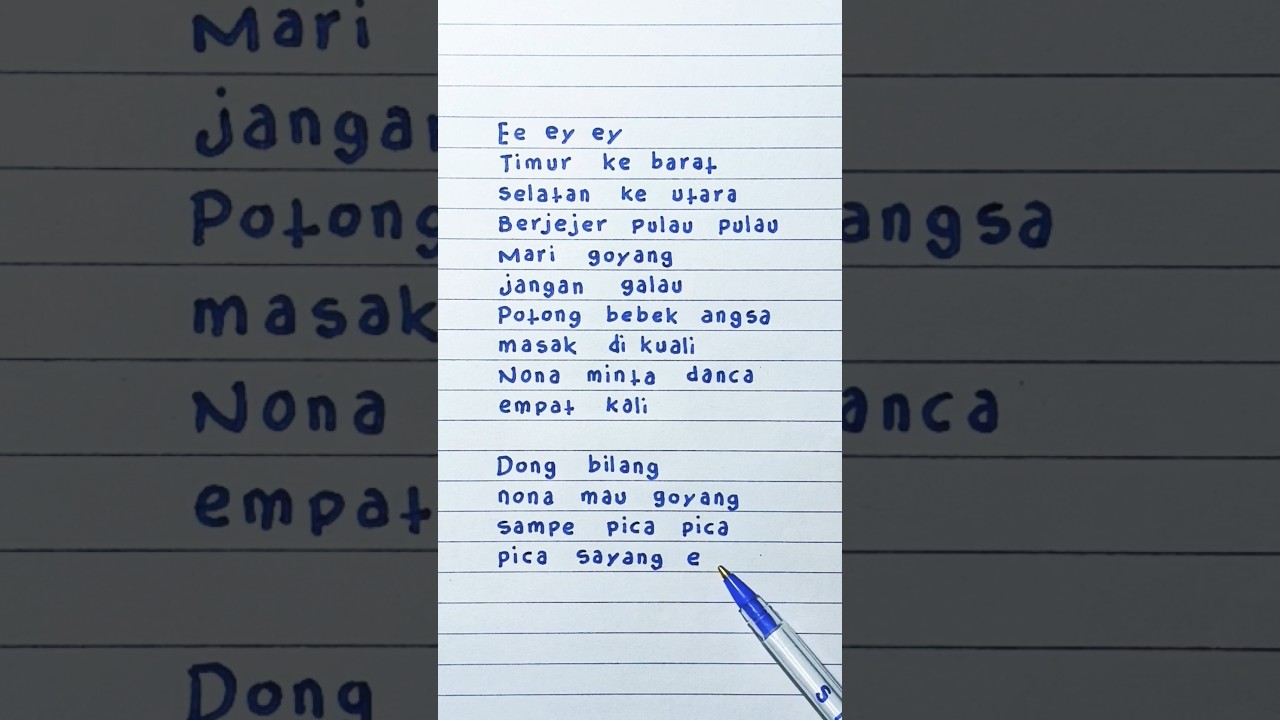 Ee ey ey
Timur ke barat
Selatan ke utara
Berjejer pulau pulau
Mari goyang
jangan galau
Potong bebek angsa
masak di kuali
Nona minta danca
empat kali
Dong bilang
nona mau goyang
sampe pica pica
pica sayang e